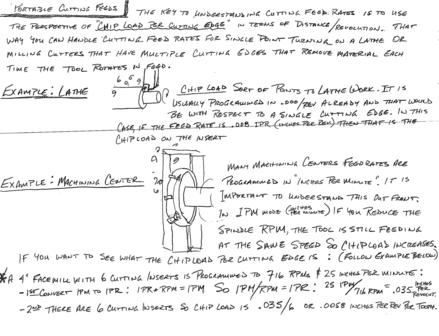 PORTABLE CUTTING FEEDS THE KEY TO UNDERSTANDING CUTTING FEED RATES IS TO USE
THE PERSPECTIVE OF "CHIP LOAD PER CUTTING EDGE" IN TERMS OF DISTANCE/REVOLUTION. THAT
WAY YOU CAN HANDLE CUTTING FEED RATES FOR SINGLE POINT TURNING ON A LATHE OR
MILLING CUTTERS THAT HAVE MULTIPLE CUTTING EDGES THAT REMOVE MATERIAL EACH
TIME THE TOOL ROTATES IN FEED.
EXAMPLE: LATHE
CHIP LOAD SORT OF POINTS TO LATHE WORK. IT IS
USUALLY PROGRAMMED IN .000/REV ALREADY AND THAT WOULD
BE WITH RESPECT TO A SINGLE CUTTING EDGE. IN THIS
CASE, IF THE FEED RATE IS .008 IPR (INCHES PER REV) THEN THAT IS THE
CHIPLOAD ON THE INSERT
EXAMPLE: MACHINING CENTER
MANY MACHINING CENTERS FEEDRATES ARE
PROGRAMMED IN "INCHES PER MINUTE". IT IS
IMPORTANT TO UNDERSTAND THIS OUT FRONT.
IN IPM MODE (INCHES PER MINUTE) IF YOU REDUCE THE
SPINDLE RPM, THE TOOL IS STILL FEEDING
AT THE SAME SPEED SO CHIPLOAD INCREASES.
IF YOU WANT TO SEE WHAT THE CHIPLOAD PER CUTTING EDGE IS: (FOLLOW EXAMPLE BELOW)
*A 4" FACEMILL WITH 6 CUTTING INSERTS IS PROGRAMMED TO 716 RPMS & 25 INCHES PER MINUTE:
-1ST CONVERT IPM TO IPR: IPR*RPM=IPM SO IPM/RPM=IPR: 25 IPM/716 RPM = .035 INCHES PER
-2ND THERE ARE 6 CUTTING INSERTS SO CHIP LOAD IS .035/6 OR .0058 INCHES PER REV PER TOOTH.